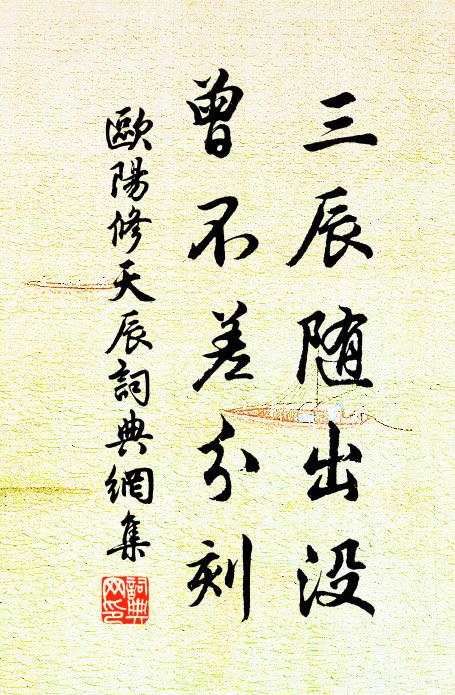 三辰随出没
曾不差分刻
歐陽修天辰詞典網集
詞典
网印